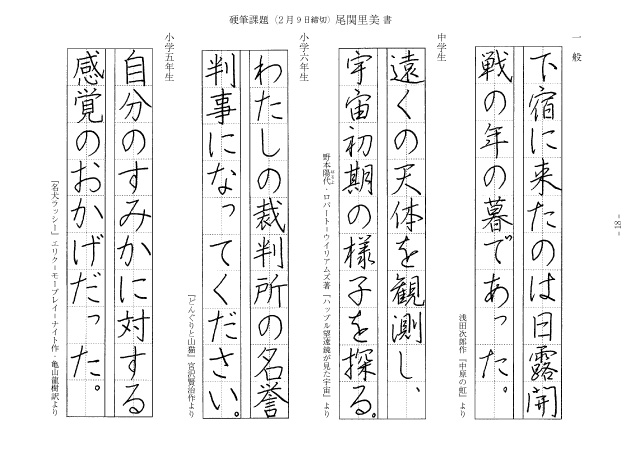 硬筆課題（２月９日締切）尾関里美 書
一般
下宿に来たのは日露開
戦の年の暮であった。
浅田次郎作『中原の虹』より
中学生
遠くの天体を観測し、
宇宙初期の様子を探る。
野本陽代・ロバート＝ウイリアムズ著『ハッブル望遠鏡が見た宇宙』より
小学六年生
わたしの裁判所の名誉
判事になってください。
『どんぐりと山猫』宮沢賢治作より
小学五年生
自分のすみかに対する
感覚のおかげだった。
『名犬ラッシー』エリク＝モーブレイ＝ナイト作 亀山龍樹訳より